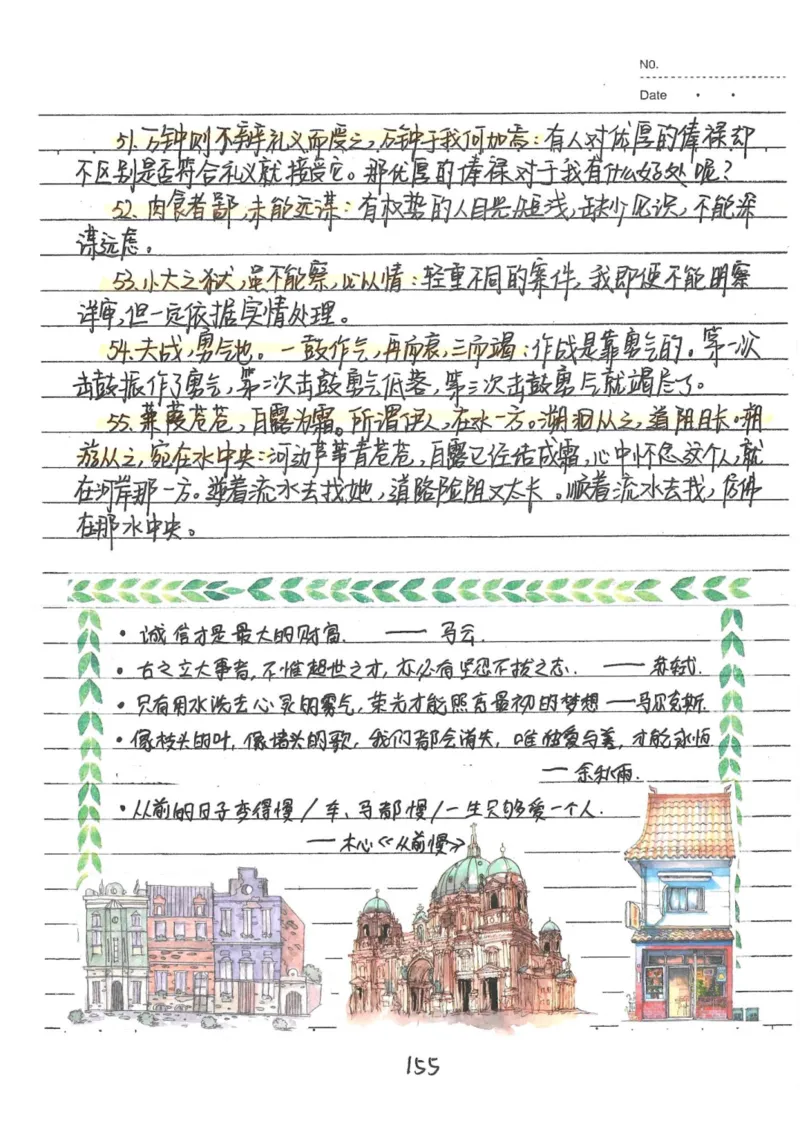 No.
Date
51.万钟则不辩礼义而受之,万钟于我何加焉:有人对优厚的俸禄却
不区别是否符合礼义就接受它。那优厚的俸禄对于我有什么好处呢?
52.肉食者鄙,未能远谋:有权势的人目光短浅,缺少见识,不能深
谋远虑。
53.小大之狱,虽不能察,必以情:轻重不同的案件,我即便不能明察
详审,但一定依据实情处理。
54.夫战,勇气也。一鼓作气,再而衰,三而竭:作战是靠勇气的。第一次
击鼓振作了勇气,第二次击鼓勇气低落,第三次击鼓勇气就竭尽了。
55.蒹葭苍苍,白露为霜。所谓伊人,在水一方。溯洄从之,道阻且长。溯
游从之,宛在水中央:河边芦苇青苍苍,白露已经结成霜,心中怀念这个人,就
在河岸那一方。逆着流水去找她,道路险阻又太长。顺着流水去找,仿佛
在那水中央。
• 诚信才是最大的财富. —— 马云.
• 古之立大事者,不惟超世之才,亦必有坚忍不拔之志. —— 苏轼.
• 只有用水洗去心灵的雾气,荣光才能照亮最初的梦想 ——马尔克斯.
• 像枝头的叶,像墙头的歌,我们都会消失,唯独爱与善,才能永恒
—— 余秋雨.
• 从前的日子变得慢/车、马都慢/一生只够爱一个人.
—— 木心《从前慢》
155